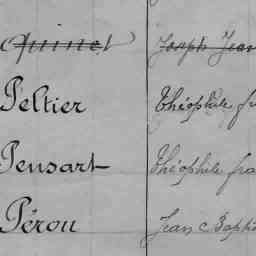 Quinet Joseph Jean
Peltier Théophile fr
Pensart Théophile fra
Pérou Jean Baptis